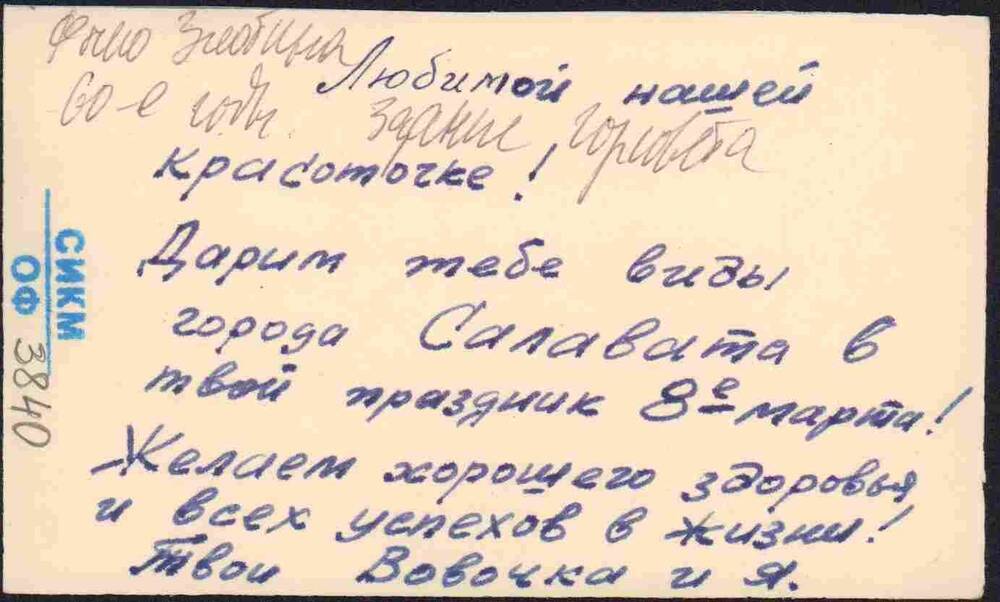 Фото Злобина
60-е годы. Здание горсовета
Любимой нашей
красоточке!
Дарим тебе виды
города Салавата в
твой праздник 8е марта!
Желаем хорошего здоровья
и всех успехов в жизни!
Твои Вовочка и Я.
СИКМ
ОФ 3840